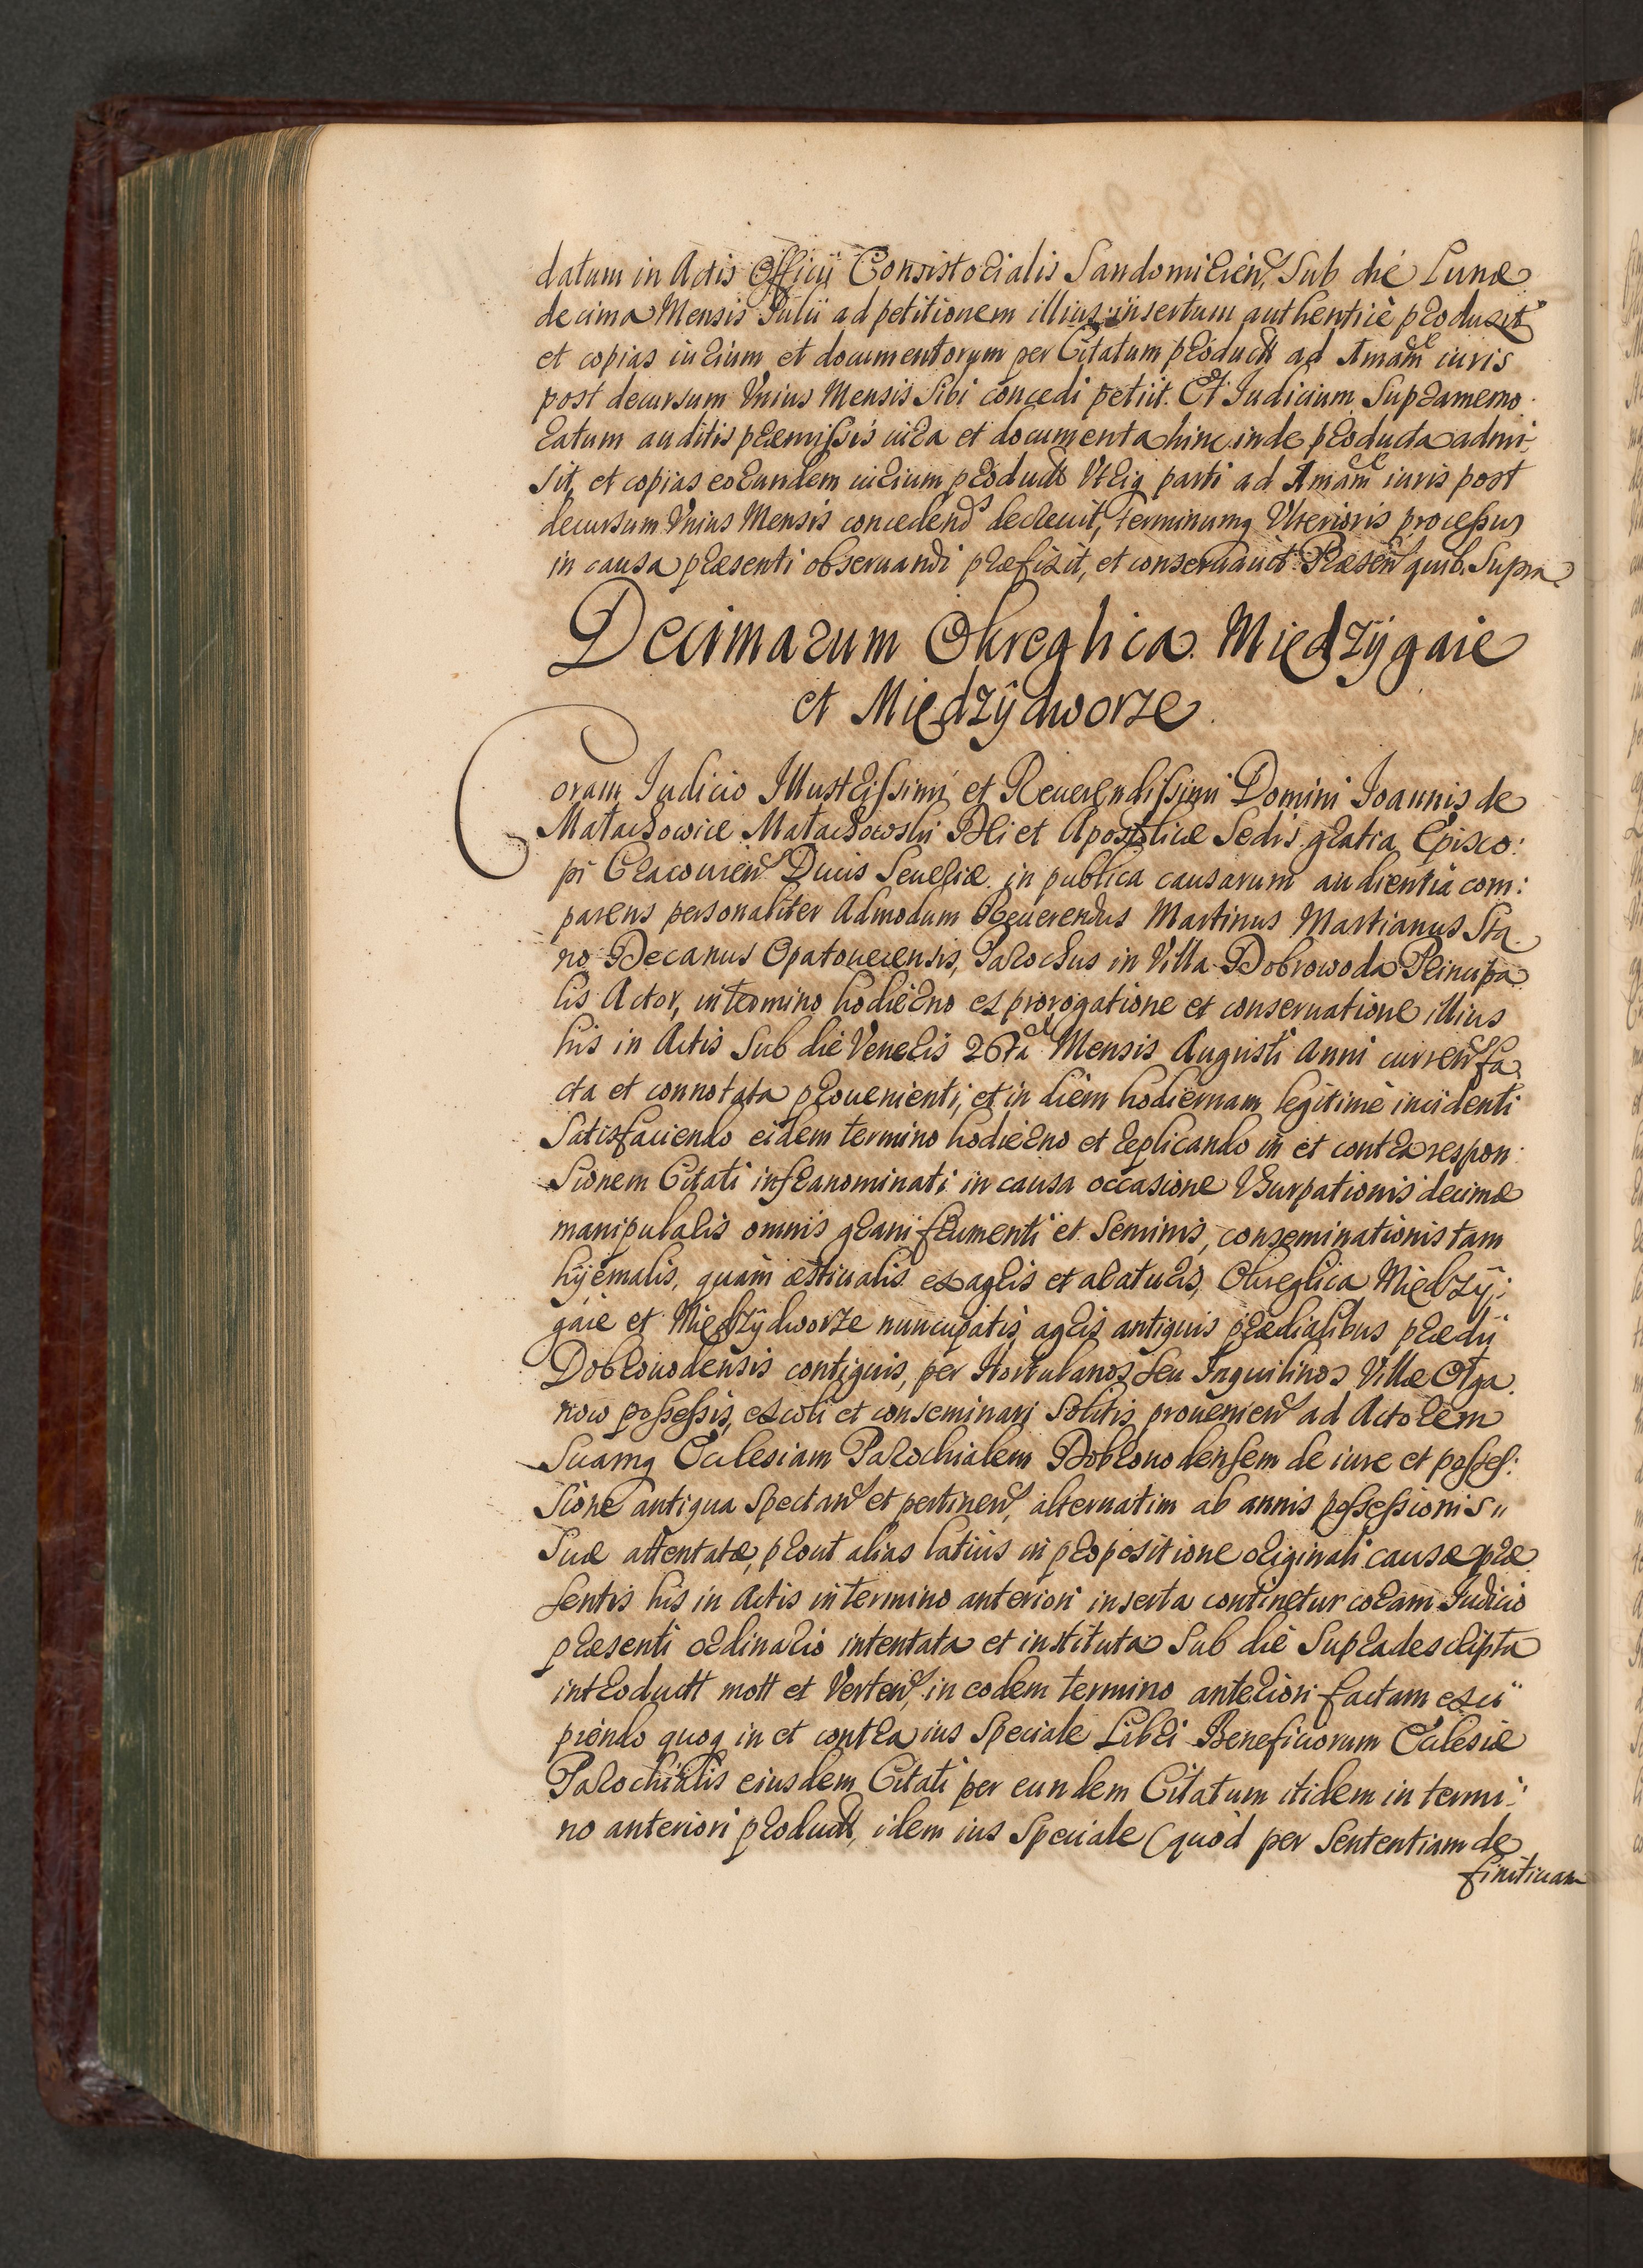 datum in Actis Officij Consistorialis Sandomirien, Sub die Lunæ
decima Mensis Julii ad petitionem illius insertum authenticè produxit
et copias iurium et documentorum per Citatum product ad Amam iuris
post decursum Vnius Mensis Sibi concedi petiit. Et Iudicium Supramemo:
ratum auditis præmissis iura et documenta hinc inde producta admi-
sit, et copias eorundem iurium product Vtriq parti ad Amam iuris post
decursum Vnius Mensis concedend decreuit, terminumq Vlterioris processus
in causa præsenti obseruandi præfixit, et conseruauit. Præsen quib. Supra.
Decimarum Okreglica. Międzÿgaie
et Międzÿdworze.
Coram Iudicio Illustrissimi et Reuerendissimi Domini Ioannis de
Małachowice Małachowski Dei et Apostolicæ Sedis gratia Episco:
pi Cracouien Ducis Seueriæ in publica causarum audientia com:
parens personaliter Admodum Reuerendus Martinus Martianus Sta.
no Decanus Opatouecensis, Parochus in Villa Dobrowoda Principa.
lis Actor, in termino hodierno ex prorogatione et conseruatione illius
his in Actis Sub die Veneris 26ta Mensis Augusti Anni curren fa.
cta et connotata prouenienti, et in diem hodiernam legitimè incidenti
Satisfaciendo eidem termino hodierno et replicando in et contra respon:
Sionem Citati infranominati in causa occasione Vsurpationis decimæ
manipularis omnis grani frumenti et Seminis, conseminationis tam
hÿemalis, quàm æstiualis ex agris et araturis, Okreglica Międzÿ:
gaie et Międzÿdworze nuncupatis, agris antiquis prædialibus prædij
Dobrouodensis contiguis, per Hortulanos seu Inquilinos Villæ Olga.
now possessis, excoli et conseminari Solitis, prouenien ad Actorem
Suamq Ecclesiam Parochialem Dobrouodensem de iure et posses:
Sione antiqua Spectan et pertinen, alternatim ab annis possessionis
Suæ attentatæ, prout alias latius in propositione originali causæ præ.
sentis his in Actis in termino anteriori inserta continetur coram Iudicio
præsenti ordinario intentata et instituta Sub die Supradescripta
introductt mott et Verten, in eodem termino anteriori factam exci
piendo quoq in et contra ius Speciale Libri Beneficiorum Ecclesiæ
Parochialis eiusdem Citati per eundem Citatum itidem in termi:
no anteriori productt, idem ius Speciale (quòd per Sententiam de
finitiuam